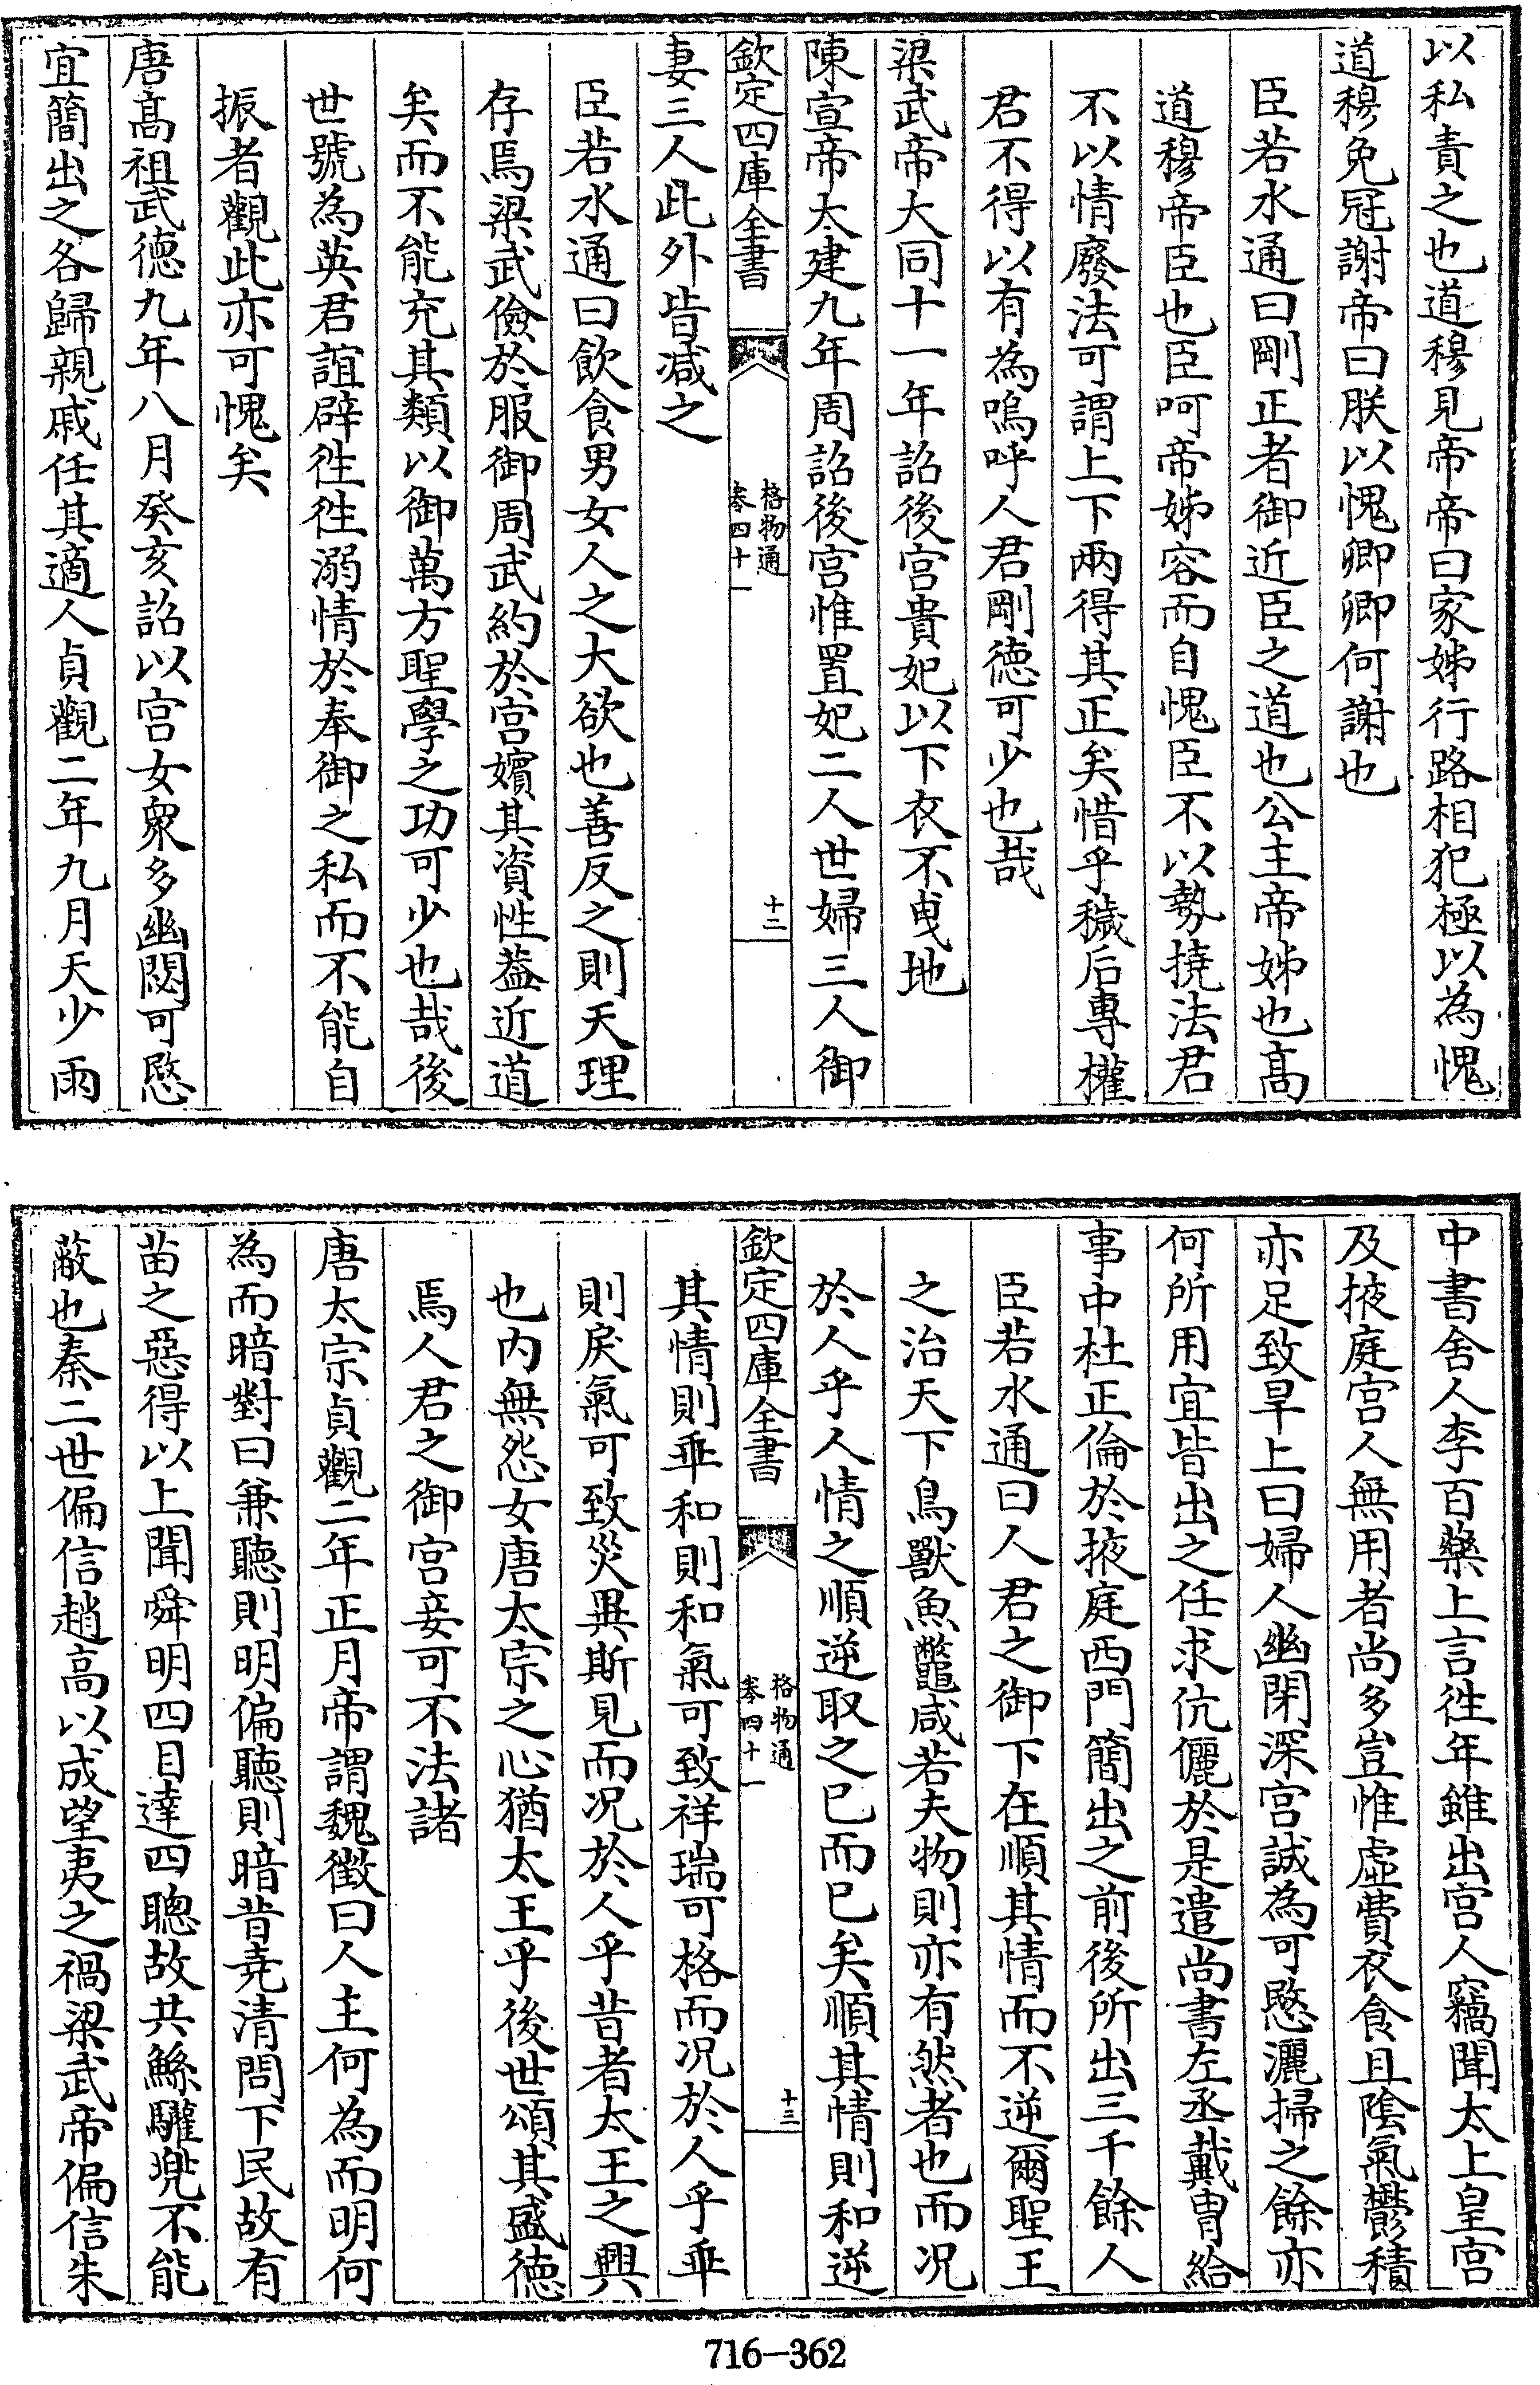 以私責之也道穆見帝帝曰家姊行路相犯極以為愧
道穆免冠謝帝曰朕以愧卿卿何謝也
臣若水通曰剛正者御近臣之道也公主帝姊也髙
道穆帝臣也臣呵帝姊容而自愧臣不以勢撓法君
不以情廢法可謂上下兩得其正矣惜乎穢后專權
君不得以有為嗚呼人君剛德可少也哉
梁武帝大同十一年詔後宫貴妃以下衣不曵地
陳宣帝太建九年周詔後宫惟置妃二人世婦三人御
欽定四庫全書
格物通
卷四十一
十二
妻三人此外皆减之
臣若水通曰飲食男女人之大欲也善反之則天理
存焉梁武儉於服御周武約於宫嬪其資性葢近道
矣而不能充其類以御萬方聖學之功可少也哉後
世號為英君誼辟徃徃溺情於奉御之私而不能自
振者觀此亦可愧矣
唐髙祖武德九年八月癸亥詔以宫女衆多幽閟可愍
宜簡出之各歸親戚任其適人貞觀二年九月天少雨
中書舍人李百藥上言徃年雖出宫人竊聞太上皇宫
及掖庭宫人無用者尚多豈惟虛費衣食且隂氣鬱積
亦足致旱上曰婦人幽閉深宫誠為可愍灑掃之餘亦
何所用宜皆出之任求伉儷於是遣尚書左丞戴胄給
事中杜正倫於掖庭西門簡出之前後所出三千餘人
臣若水通曰人君之御下在順其情而不逆爾聖王
之治天下鳥獸魚鼈咸若夫物則亦有然者也而况
於人乎人情之順逆取之已而已矣順其情則和逆
欽定四庫全書
格物通
卷四十一
十三
其情則乖和則和氣可致祥瑞可格而况於人乎乖
則戾氣可致災異斯見而况於人乎昔者太王之興
也内無怨女唐太宗之心猶太王乎後世頌其盛德
焉人君之御宫妾可不法諸
唐太宗貞觀二年正月帝謂魏徴曰人主何為而明何
為而暗對曰兼聽則明偏聽則暗昔堯清問下民故有
苗之惡得以上聞舜明四目達四聰故共鯀驩兠不能
蔽也秦二世偏信趙高以成望夷之禍梁武帝偏信朱
716-362